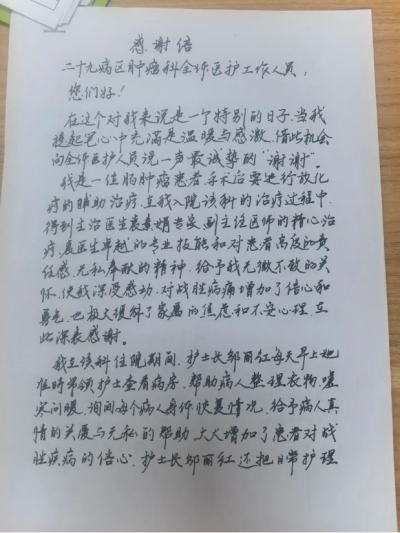 感谢信
二十九病区肿瘤科全体医护工作人员，
您们好！
在这个对我来说是一个特别的日子，当我
提起笔心中充满是温暖与感激，借此机会
向全体医护人员说一声最诚挚的“谢谢”。
我是一位肺肿瘤患者，手术后要进行放化
疗的辅助治疗，在我入院该科的治疗过程中，
得到主治医生袁素娟专安，副主任医师的精心治
疗，袁医生卓越的专业技能和对患者高度的责
任感，无私奉献的精神，给予我无微不致的关
怀，使我深受感动，对战胜病痛增加了信心和
勇气，也极大缓解了家属的焦虑和不安心理，在
此深表感谢。
我在该科住院期间，护士长邹丽红每天早上她
准时带领护士查看病房，帮助病人整理衣物，嘘
寒问暖，询问每个病人身体恢复情况，给予病人真
情的关爱与无私的帮助，大大增加了患者对战
胜疾病的信心，护士长邹丽红还把日常护理